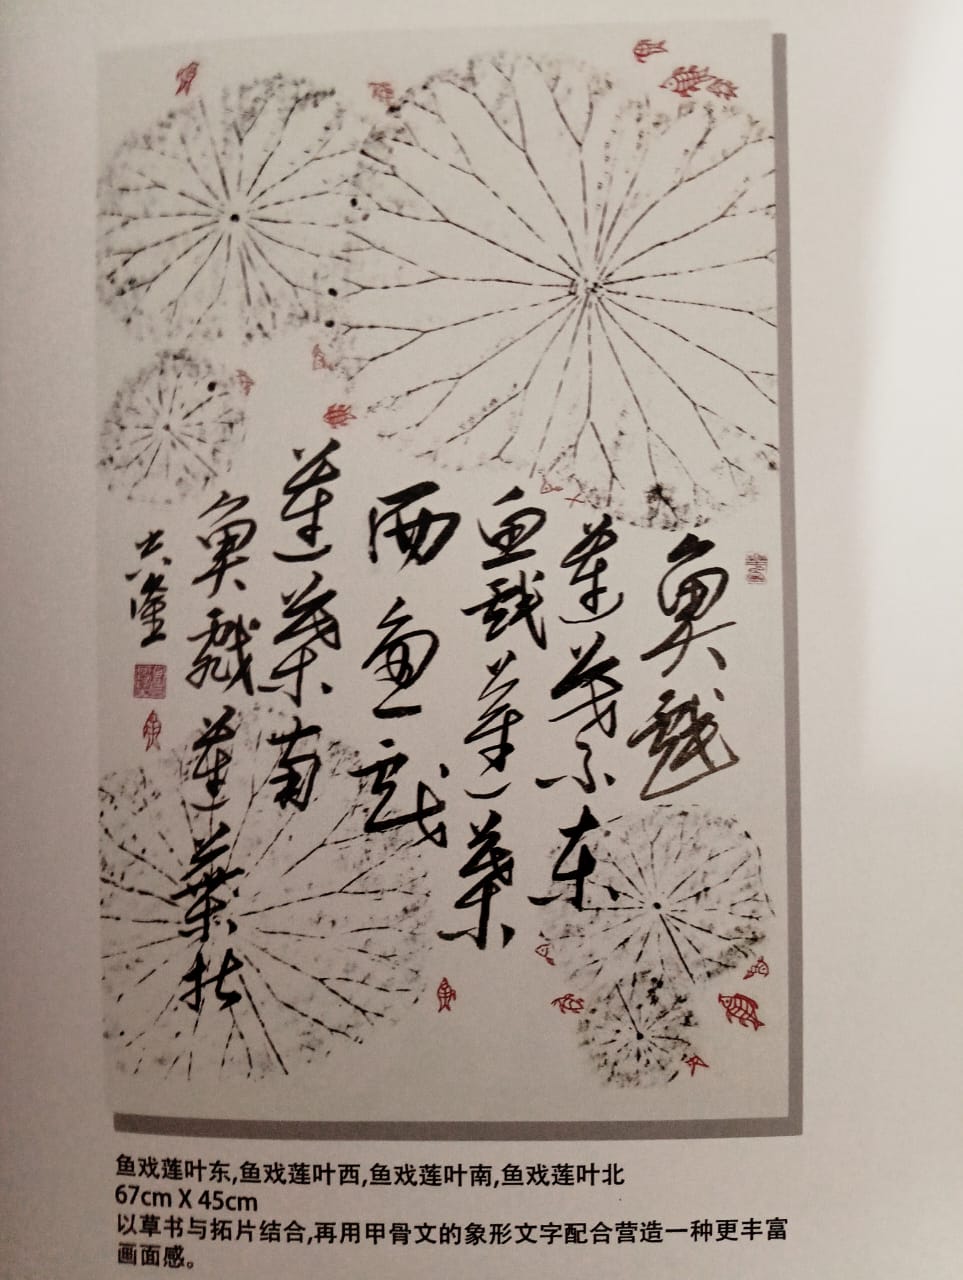 魚戲
蓮葉东
魚戲蓮葉
西魚戲
蓮葉南
魚戲蓮葉北
鱼戏莲叶东,鱼戏莲叶西,鱼戏莲叶南,鱼戏莲叶北
67cm X 45cm
以草书与拓片结合,再用甲骨文的象形文字配合营造一种更丰富
画面感。